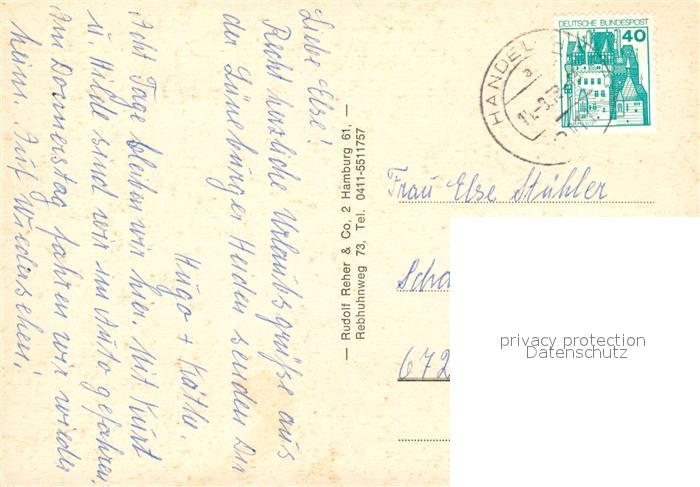 Liebe Else!
Recht herzliche Urlaubsgrüße aus
der Lüneburger Heiden senden Dir
Hugo + Käthe.
Acht Tage bleiben wir hier. Mit Kurt
u. Hilde sind wir im Auto gefahren.
Am Donnerstag fahren wir wieder
heim. Auf Wiedersehen!
— Rudolf Reher & Co, 2 Hamburg 61, —
Rebhuhnweg 73, Tel. 0411-5511757
DEUTSCHE BUNDESPOST
40
HANDEL
a
Frau Else Stühler
Scha
672
privacy protection
Datenschutz